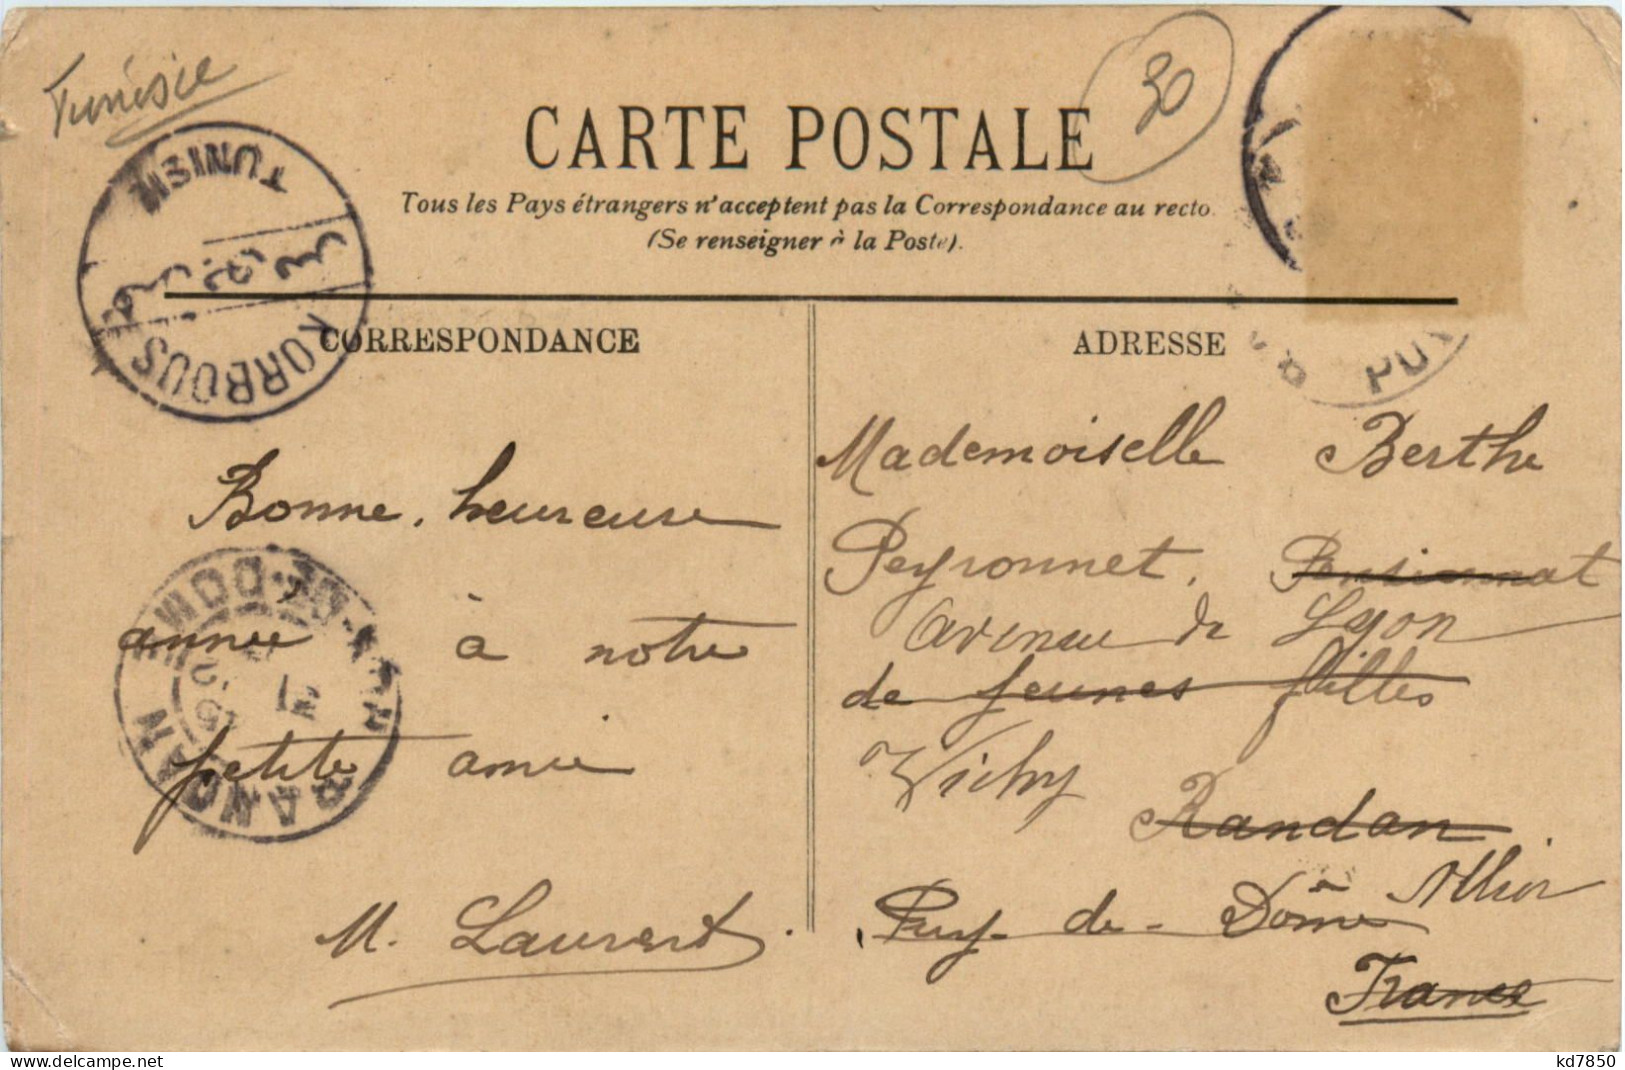 Tunisie
30
CARTE POSTALE
Tous les Pays étrangers n'acceptent pas la Correspondance au recto
(Se renseigner à la Poste).
TUNISIE
KORBOUS
CORRESPONDANCE
ADRESSE
Bonne, heureuse
année à notre
petite amie
M. Laurent.
RANDAN
PUY-DE-DOME
Mademoiselle Berthe
Peyronnet, Pensionnat
avenue de Lyon
de jeunes filles
Vichy
Randan
Allier
Puy-de-Dôme
France
delcampe.net
kd7850